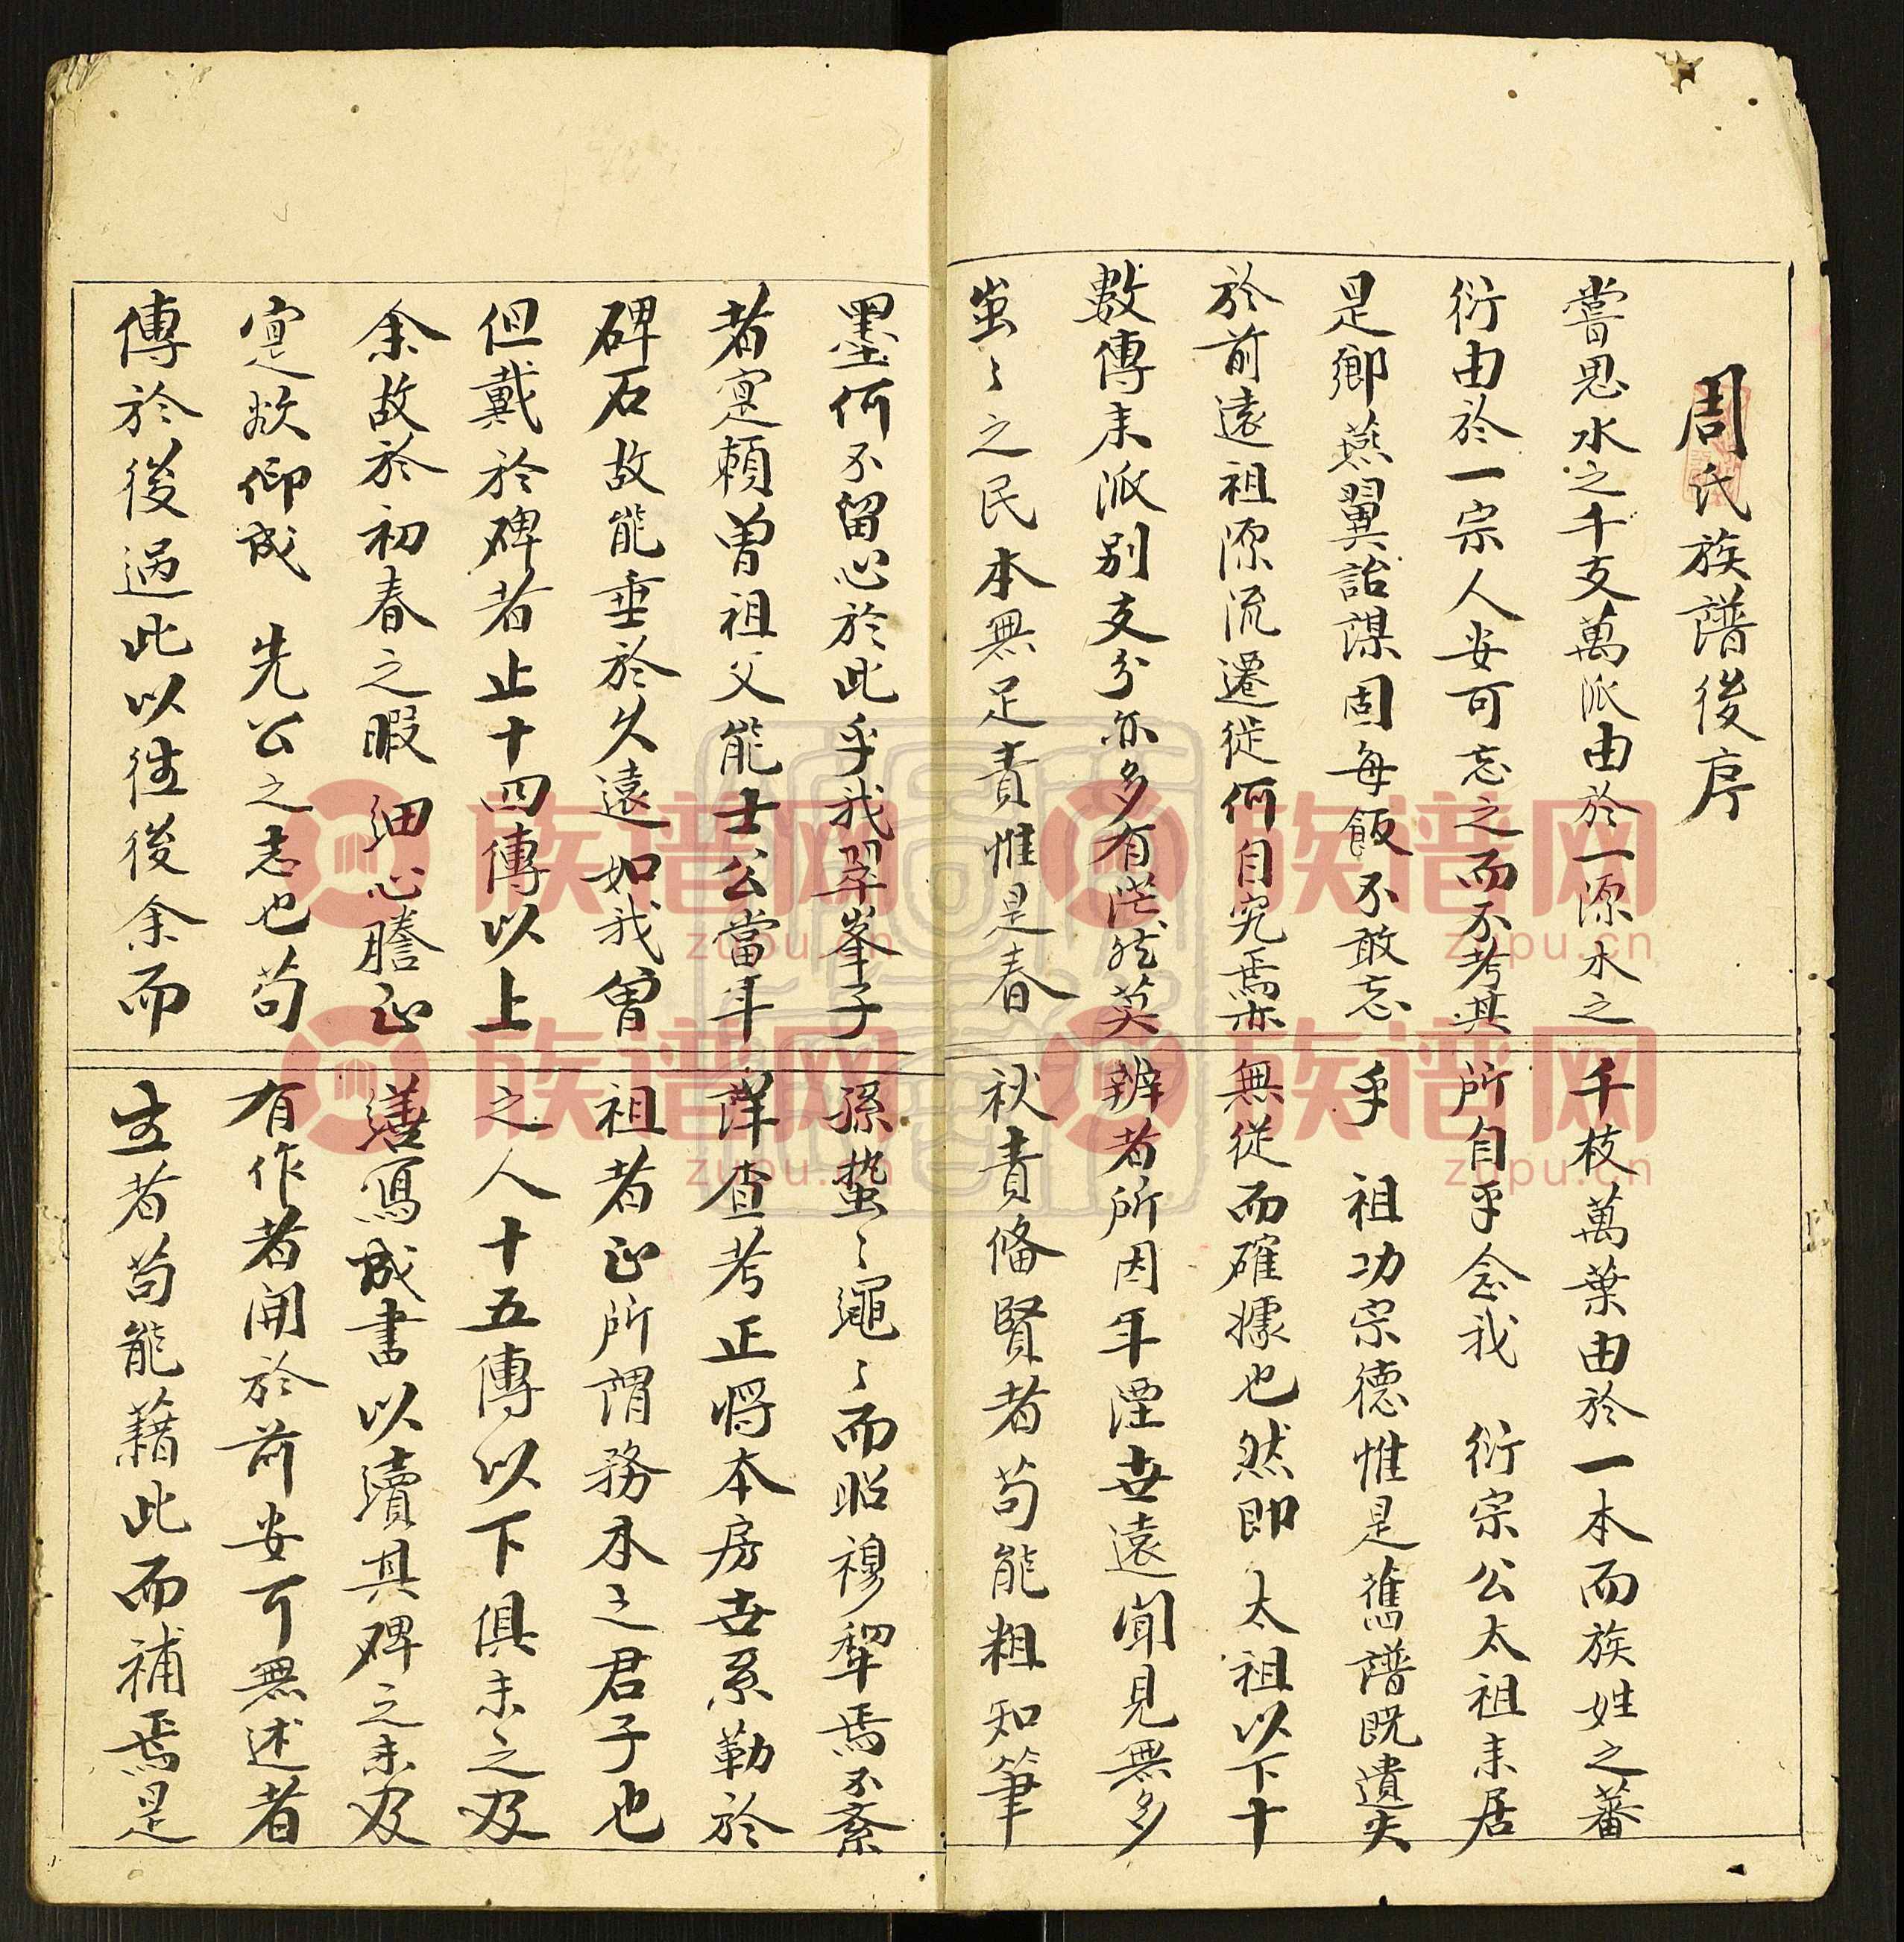 周氏族譜後序
嘗思水之千支萬派由於一源木之千枝萬葉由於一本而族姓之蕃
衍由於一宗人安可忘之而不考其所自乎念我 衍宗公太祖來居
是鄉燕翼詒謀固每飯不敢忘乎 祖功宗德惟是舊譜既遺失
於前遠祖源流遷徙何自究焉亦無從而確據也然即 太祖以下十
數傳來派別支分亦多有茫然莫辨者所因年湮世遠聞見無多
蚩〻之民本無足責惟是春秋責俻賢者苟能粗知筆
墨何不留心於此乎我翠峯子孫蟄〻繩〻而昭穆犂焉不紊
者寔賴曾祖父能士公當年詳查考正將本房世系勒於
碑石故能垂於久遠如我曾祖者正所謂務本之君子也
但戴於碑者止十四傳以上之人十五傳以下俱未之及
余故於初春之暇細心謄正繕寫成書以續其碑之未及
寔欲仰成 先公之志也苟有作者開於前安可無述者
傳於後過此以徃後余而生者苟能藉此而補焉是
族谱网
zupu.cn
族谱网
zupu.cn
族谱网
zupu.cn
族谱网
zupu.cn